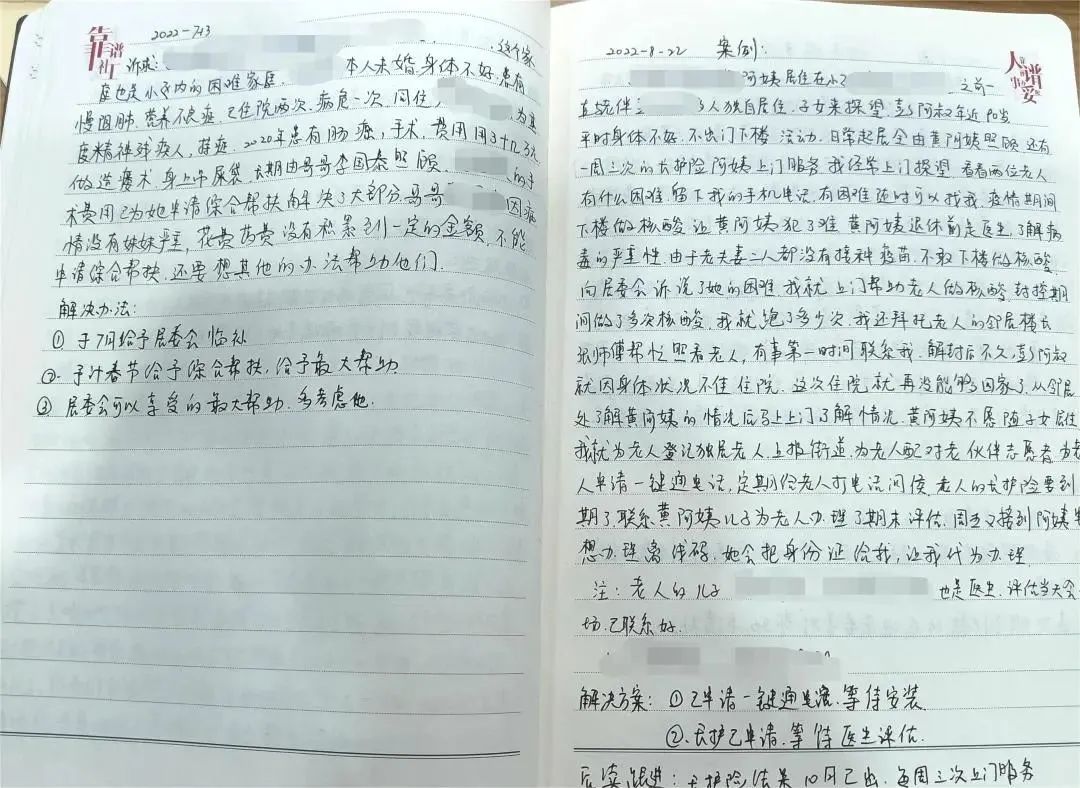 靠谱社工
2022-7-13
诉求:
,这个家
庭也是小区内的困难家庭.
本人未婚,身体不好,患有
慢阻肺.营养不良症.已住院两次,病危一次,同住,
,为重
度精神残疾人,
2020年患有肠癌,手术,费用用3十几万元
做造瘘术.身上吊尿袋.长期由哥哥李国泰照顾.
的手
术费用已为她申请综合帮扶,解决了大部分.哥哥
因病
情没有妹妹严重,花费药费没有积累到一定的金额,不能
申请综合帮扶.还要想其他的办法帮助他们.
解决办法:
① 于7月给予居委会临补
②.予计春节给予综合帮扶,给予最大帮助.
③ 居委会可以享受的最大帮助.多考虑他.
人靠谱事妥
2022-8-22 案例:
阿姨居住在小区
之前一
直与老伴
2人独自居住.子女来探望.彭阿叔年近
平时身体不好.不出门下楼活动.日常起居全由黄阿姨照顾.还有
一周三次的长护险阿姨上门服务.我经常上门探望.看看两位老人
有什么困难.留下我的手机电话.有困难随时可以找我.疫情期间
下楼做核酸,让黄阿姨犯了难.黄阿姨退休前是医生,了解病
毒的严重性.由于老夫妻二人都没有接种疫苗.不敢下楼做核酸.
向居委会诉说了她的困难.我就上门帮助老人做核酸.封控期
间做了多次核酸,我就跑了多少次.我还拜托老人的邻居楼长
张师傅帮忙照看老人,有事第一时间联系我.解封后不久.彭阿叔
就因身体状况不佳住院.这次住院就再没能够回家了.从邻居
处了解黄阿姨的情况后马上上门了解情况.黄阿姨不愿随子女居住
我就为老人登记独居老人.上报街道.为老人配对老伙伴志愿者.为老
人申请一键通电话,定期给老人打电话问侯.老人的长护险要到
期了.联系黄阿姨儿子为老人办理了期末评估.周五又接到阿姨
想办理离线码.她会把身份证给我,让我代为办理
注: 老人的儿子
也是医生.评估当天会
场.已联系好.
解决方案: ①已申请一键通电话.等待安装
②.长护已申请.等待医生评估.
后续跟进: 长护险结果10月已出.每周三次上门服务